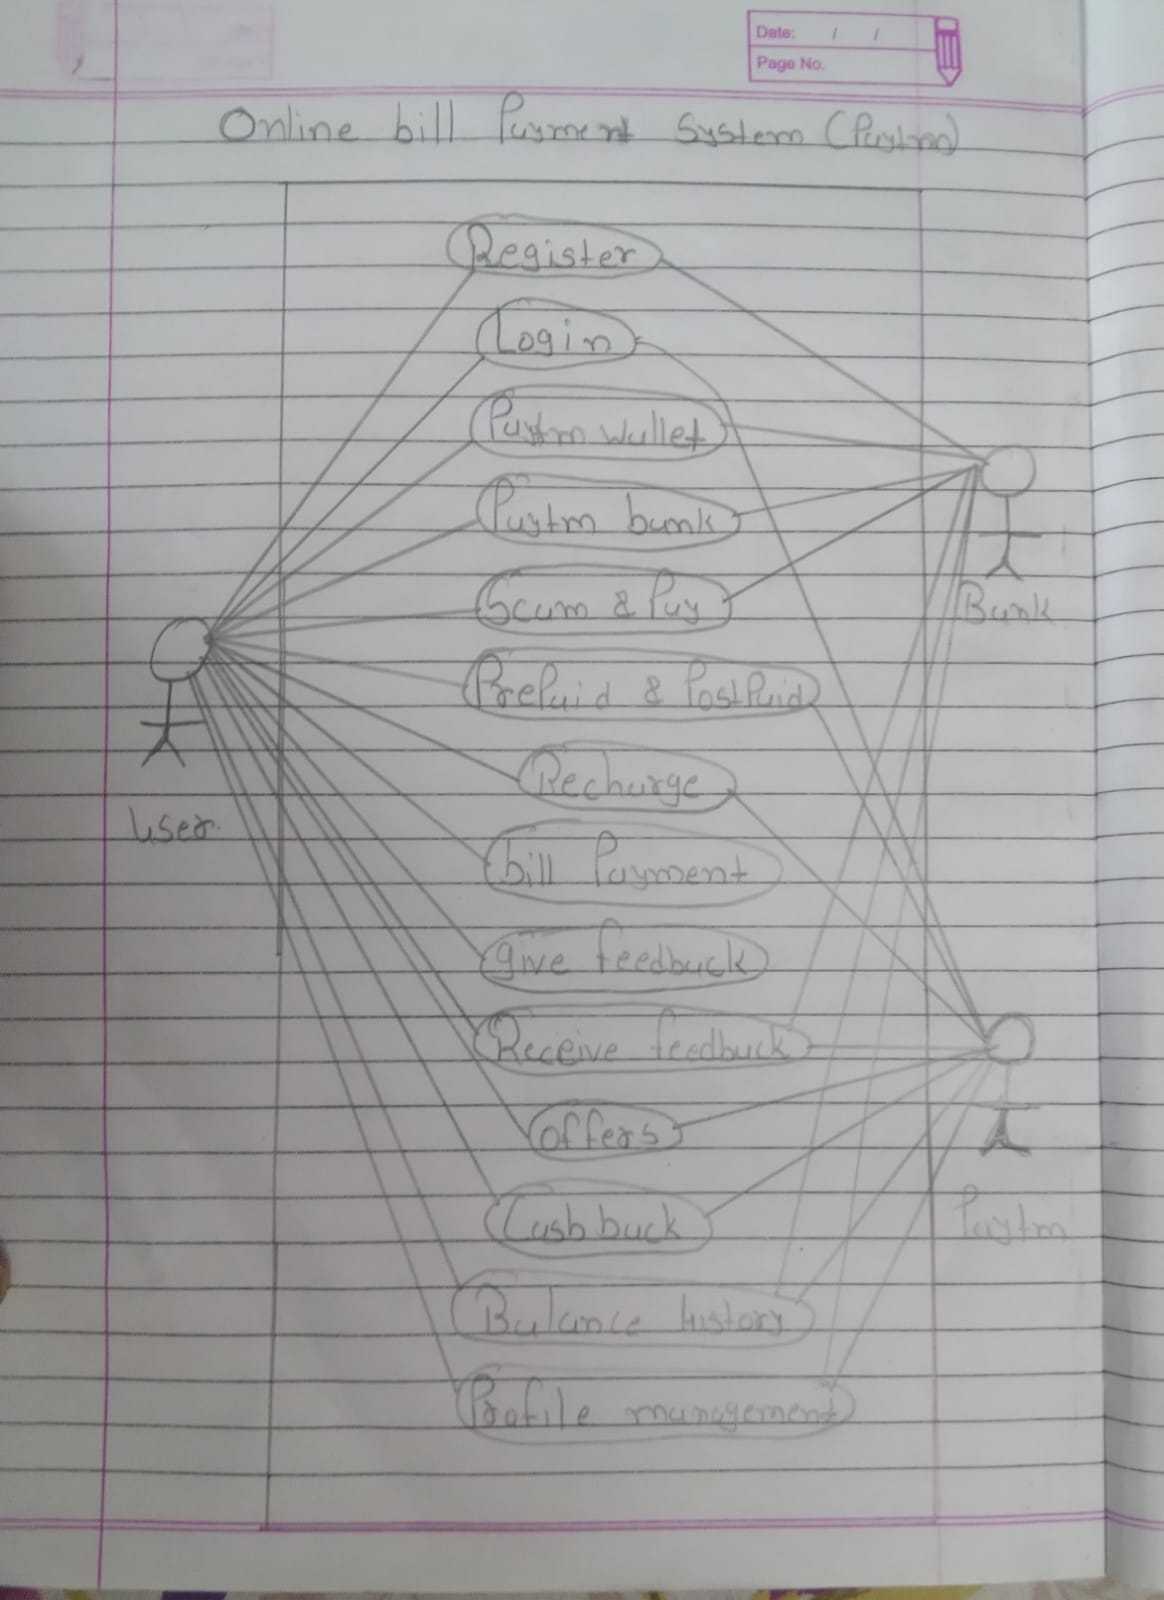 Date: / /
Page No.
Online bill Payment System (Paytm)
Register
Login
Paytm wallet
Paytm bank
Scam & Pay
Prepaid & Postpaid
Recharge
bill Payment
give feedback
Receive feedback
offers
Cashback
Balance history
Profile management
User
Bank
Paytm